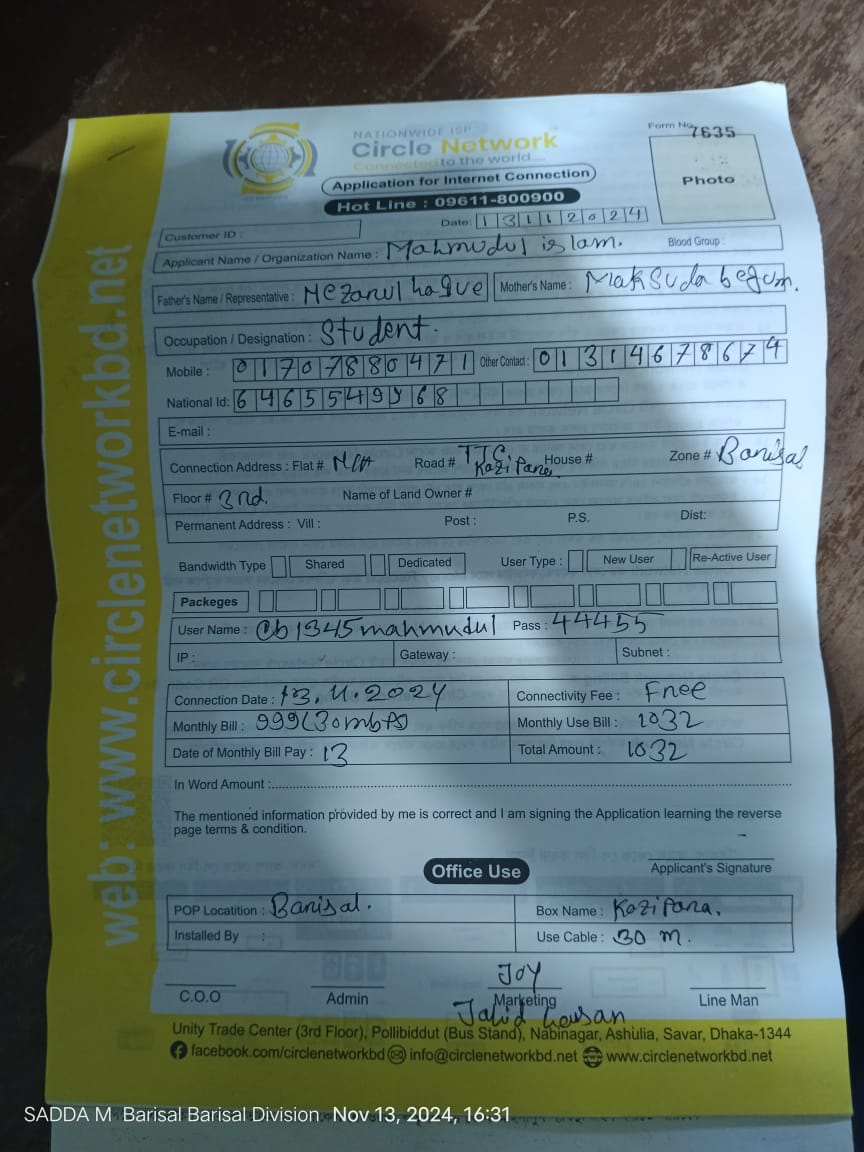 NATIONWIDE ISP
Circle Network
Connected to the world...
Form No. 7635
Photo
Application for Internet Connection
Hot Line : 09611-800900
Date: 13112024
Customer ID :
Applicant Name / Organization Name : Mahmudul islam. Blood Group :
Father's Name / Representative : Mezanul haque Mother's Name : Maksuda begum.
Occupation / Designation : Student.
Mobile : 01707880471 Other Contact : 01314678674
National Id: 6465549968
E-mail :
Connection Address : Flat # N/A Road # TTC Kazi Para House # Zone # Barisal
Floor # 3rd. Name of Land Owner #
Permanent Address : Vill : Post : P.S. Dist:
Bandwidth Type Shared Dedicated User Type : New User Re-Active User
Packeges
User Name : cb1345mahmudul Pass : 44455
IP : Gateway : Subnet :
Connection Date : 13.11.2024 Connectivity Fee : Free
Monthly Bill : 999(30mbps) Monthly Use Bill : 1032
Date of Monthly Bill Pay : 13 Total Amount : 1032
In Word Amount :
The mentioned information provided by me is correct and I am signing the Application learning the reverse
page terms & condition.
Applicant's Signature
Office Use
POP Locatition : Barisal. Box Name : Kazi Para.
Installed By : Use Cable : 30 m.
Joy
C.O.O Admin Marketing Line Man
Jahid hasan
Unity Trade Center (3rd Floor), Pollibiddut (Bus Stand), Nabinagar, Ashulia, Savar, Dhaka-1344
facebook.com/circlenetworkbd info@circlenetworkbd.net www.circlenetworkbd.net
web: www.circlenetworkbd.net
SADDA M Barisal Barisal Division Nov 13, 2024, 16:31